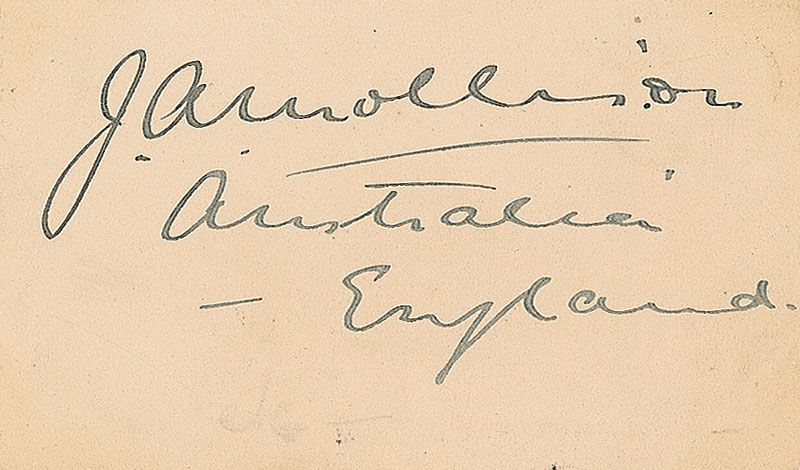 J. A Mollison
Australia
– England.